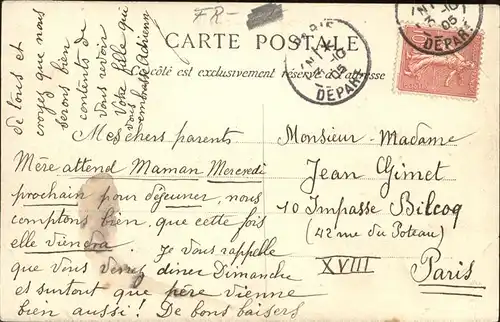 FR-
CARTE POSTALE
Ce côté est exclusivement réservé à l'adresse
PARIS
3 -10
05
DEPART
3 -10
05
DEPART
10
Mes chers parents
Mère attend Maman Mercredi
prochain pour déjeuner, nous
comptons bien, que cette fois
elle viendra. Je vous rappelle
que vous venez diner Dimanche
et surtout que père vienne
bien aussi! De bons baisers
de tous et
croyez que nous
serons bien
contents de
vous revoir
Votre fille qui
vous
embrasse Adrienne
Monsieur-Madame
Jean Gimet
10 Impasse Bilcoq
(42 rue du Poteau)
XVIII
Paris